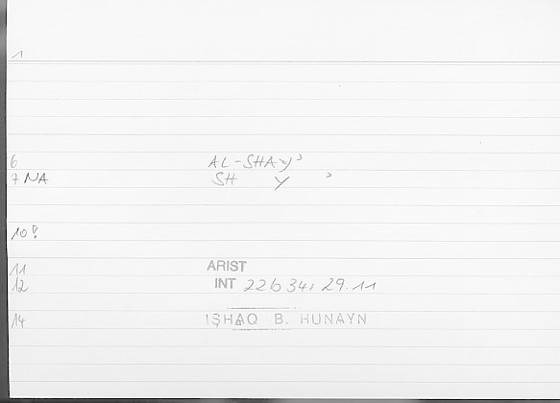 1
6 AL-SHAY'
7 NA SH Y '
10?
11 ARIST
12 INT 22b34, 29.11
14 ISḤAQ B. ḤUNAYN